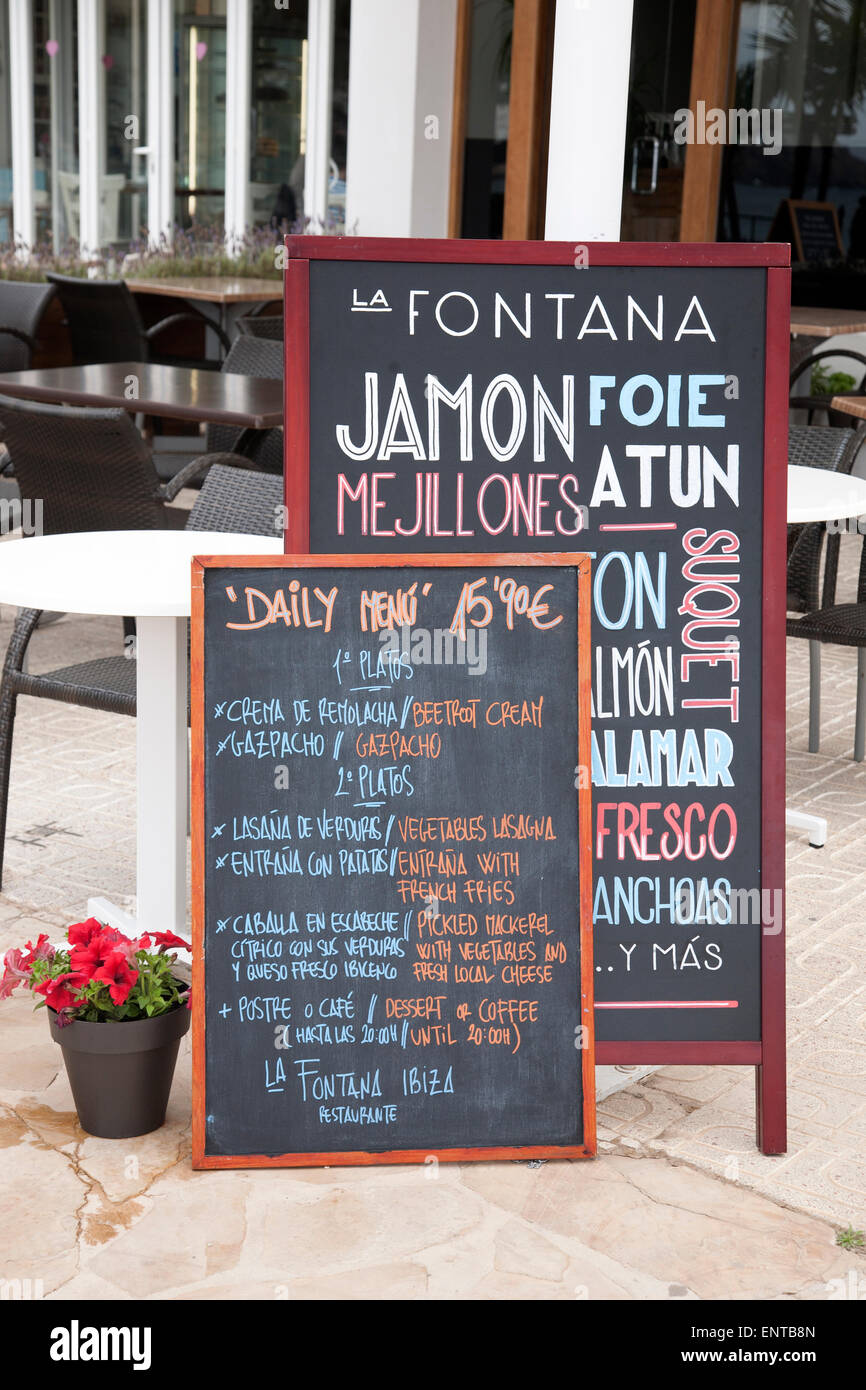 LA FONTANA
JAMON
FOIE
MEJILLONES
ATUN
SUQUET
ALMÓN
ALAMAR
FRESCO
ANCHOAS
..Y MÁS
"DAILY MENÚ" 15'90€
1º PLATOS
* CREMA DE REMOLACHA // BEETROOT CREAM
* GAZPACHO // GAZPACHO
2º PLATOS
* LASAÑA DE VERDURAS / VEGETABLES LASAGNA
* ENTRAÑA CON PATATAS / ENTRAÑA WITH
FRENCH FRIES
* CABALLA EN ESCABECHE / PICKLED MACKEREL
CÍTRICO CON SUS VERDURAS WITH VEGETABLES AND
Y QUESO FRESCO IBICENCO FRESH LOCAL CHEESE
+ POSTRE O CAFÉ // DESSERT OR COFFEE
(HASTA LAS 20:00H // UNTIL 20:00H)
LA FONTANA IBIZA
RESTAURANTE
alamy
alamy stock photo
ENTB8N
www.alamy.com